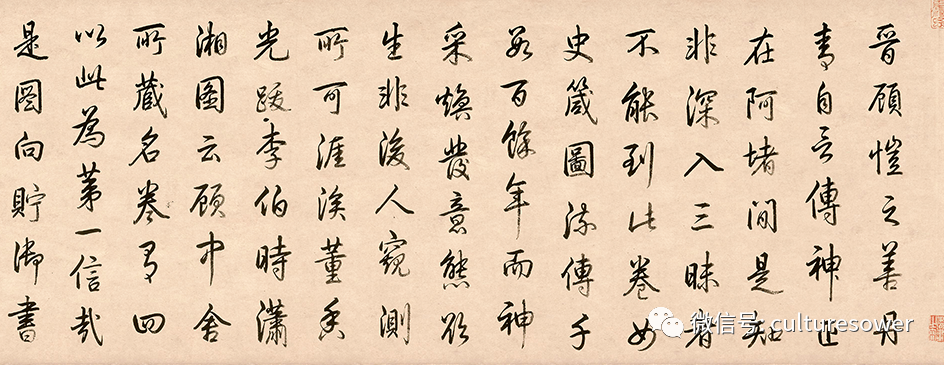 晉顧愷之善丹
青自言傳神正
在阿堵間是知
非深入三昧者
不能到此卷女
史箴圖流傳千
數百餘年而神
采煥發意態欲
生非後人窺測
所可涯涘董香
光跋李伯時瀟
湘圖云顧中舍
所藏名卷有四
以此為第一信哉
是圖向貯御書
微信号: culturesower